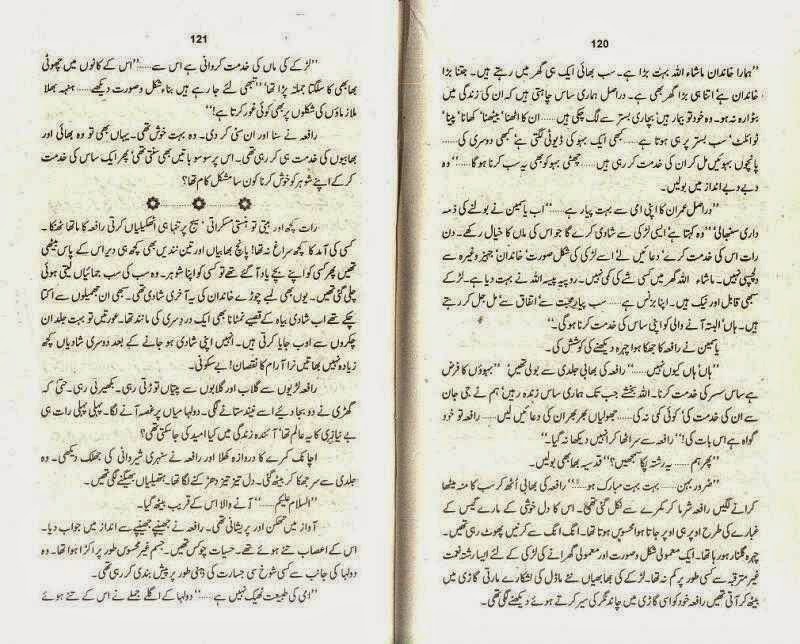 120
”ہمارا خاندان ماشاء اللہ بہت بڑا ہے۔ سب بھائی ایک ہی گھر میں رہتے ہیں۔ جتنا بڑا
خاندان ہے اتنا ہی بڑا گھر بھی ہے۔ دراصل ہماری ساس چاہتی ہیں کہ ان کی زندگی میں
بٹوارہ نہ ہو۔ وہ خود تو بیمار ہیں‘ بچاری بستر سے لگ چکی ہیں....... ان کا اٹھنا‘ بیٹھنا‘ کھانا‘ پینا‘
ٹوائلٹ‘ سب بستر پر ہی ہوتا ہے....... کبھی ایک بہو کی ڈیوٹی لگتی ہے‘ کبھی دوسری کی.......
پانچوں بہوئیں مل کر ان کی خدمت کر رہی ہیں....... چھٹی بہو کو بھی یہ سب کرنا ہوگا.......“ وہ
دبے دبے انداز میں بولیں۔
”دراصل عمران کا اپنی امی سے بہت پیار ہے.......“ اب یاسمین نے بولنے کی ذمہ
داری سنبھالی‘ ”وہ کہتا ہے‘ ایسی لڑکی سے شادی کرے گا جو اس کی ماں کا خیال رکھے۔ دن
رات اس کی خدمت کرے‘ دعائیں لے‘ اسے لڑکی کی شکل صورت‘ خاندان‘ جہیز وغیرہ سے
دلچسپی نہیں۔ ماشاء اللہ گھر میں کسی شے کی کمی نہیں۔ روپیہ پیسہ اللہ نے بہت دیا ہے۔ لڑکے
سبھی قابل اور نیک ہیں۔ اپنا بزنس ہے....... سب پیار محبت سے‘ اتفاق سے‘ مل جل کر رہتے
ہیں۔ ہاں‘ البتہ آنے والی کو اپنی ساس کی خدمت کرنا ہوگی۔“
یاسمین نے رافعہ کا جھکا ہوا چہرہ دیکھنے کی کوشش کی۔
”ہاں‘ ہاں کیوں نہیں.......“ رافعہ کی بھابی جلدی سے بولی تھیں‘ ”بہوؤں کا فرض
ہے ساس سسر کی خدمت کرنا۔ اللہ بخشے جب تک ہماری ساس زندہ رہیں‘ ہم نے جی جان
سے ان کی خدمت کی‘ کوئی کمی نہ کی....... جھولیاں بھر بھر ان کی دعائیں لیں....... رافعہ تو خود
گواہ ہے اس بات کی!“ رافعہ سے سر اٹھا کر انہیں دیکھا نہ گیا۔
”پھر ہم....... یہ رشتہ پکا سمجھیں؟“ قدسیہ بھابھی بولیں۔
”ضرور بہن....... بہت بہت مبارک ہو.......“ رافعہ کی بھابی اٹھ کر سب کا منہ میٹھا
کرانے لگیں‘ رافعہ شرما کر کمرے سے نکل گئی تھی۔ اس کا دل خوشی کے مارے گیس کے
غبارے کی طرح اوپر ہی اوپر جاتا ہوا محسوس ہوتا تھا۔ انگ انگ سے کرنیں پھوٹ رہی تھیں۔
چہرہ گلنار ہو رہا تھا۔ ایک معمولی شکل و صورت اور معمولی گھرانے کی لڑکی کے لئے ایسا رشتہ نعمت
غیر مترقبہ سے کسی طور پر کم نہ تھا۔ لڑکے کی بھابھیاں نئے ماڈل کی لشکارے مارتی گاڑی میں
بیٹھ کر آتی تھیں‘ رافعہ خود کو اسی گاڑی میں چاند نگر کی سیر کرتے ہوئے دیکھنے لگی تھی۔
121
”لڑکے کی ماں کی خدمت کروانی ہے اس سے.......“ اس کے کانوں میں چھوٹی
بھابھی کا سلگتا جملہ پڑا تھا‘ ”تبھی لئے جا رہے ہیں بناء شکل و صورت دیکھے....... ہنہہ بھلا
ملازماؤں کی شکلوں پر بھی کوئی غور کرتا ہے!“
رافعہ نے سنا اور ان سنی کر دی۔ وہ بہت خوش تھی۔ یہاں بھی تو وہ بھائی اور
بھابیوں کی خدمت ہی کر رہی تھی۔ اس پر سو سو باتیں بھی سنتی تھی‘ پھر ایک ساس کی خدمت
کر کے اپنے شوہر کو خوش کرنا کون سا مشکل کام تھا؟
رات کچھ اور بیتی تو ہنستی مسکراتی‘ سیج پر تنہا ہی اٹھکیلیاں کرتی رافعہ کا ماتھا ٹھنکا۔
کسی کی آمد کا کچھ سراغ نہ تھا! پانچ بھابیاں اور تین نندیں بھی کچھ ہی دیر اس کے پاس بیٹھی
تھیں پھر کسی کو اپنے بچے یاد آ گئے تھے تو کسی کو اپنا شوہر۔ وہ سب کی سب جمائیاں لیتی ہوئی
چلی گئی تھیں۔ یوں بھی لمبے چوڑے خاندان کی یہ آخری شادی تھی۔ سبھی ان جھمیلوں سے اکتا
چکے تھے اب شادی بیاہ کے قصبے نمٹانا بھی ایک دردِ سری کی مانند تھا۔ عورتیں تو بہت جلد ان
چکروں سے اوب جایا کرتی ہیں۔ انہیں اپنی شادی ہو جانے کے بعد دوسری شادیاں کچھ
زیادہ نہیں بھاتیں نرا آرام کا نقصان! بے سکونی۔
رافعہ لڑیوں سے گلاب اور گلابوں سے پتیاں توڑتی رہی۔ بکھیرتی رہی۔ حتیٰ کہ
گھڑی نے دو بجا دیئے‘ اسے نیند ستانے لگی۔ دولہا میاں پر غصہ آنے لگا۔ پہلی پہلی رات ہی
بے نیازی کا یہ عالم تھا‘ آئندہ زندگی میں کیا امید کی جا سکتی تھی؟
اچانک کمرے کا دروازہ کھلا اور رافعہ نے سنہری شیروانی کی جھلک دیکھی۔ وہ
جلدی سے سر جھکا کر بیٹھ گئی۔ دل تیز تیز دھڑکنے لگا تھا۔ ہتھیلیاں بھیگنے لگی تھیں۔
”السلام علیکم.......“ آنے والا اس کے قریب بیٹھ گیا۔
آواز میں تھکن اور پریشانی تھی۔ رافعہ نے جھینپے جھینپے سے انداز میں جواب دیا۔
اس کے اعصاب تنے ہوئے تھے۔ حسیات چوکس تھیں۔ جسم غیر محسوس طور پر اکڑا ہوا تھا۔ وہ
دولہا کی جانب سے کسی شوخ سی جسارت کی ذہنی طور پر پیش بندی کر رہی تھی۔
”امی کی طبیعت ٹھیک نہیں ہے.......“ دولہا کے اگلے جملے نے اس کے تنے ہوئے